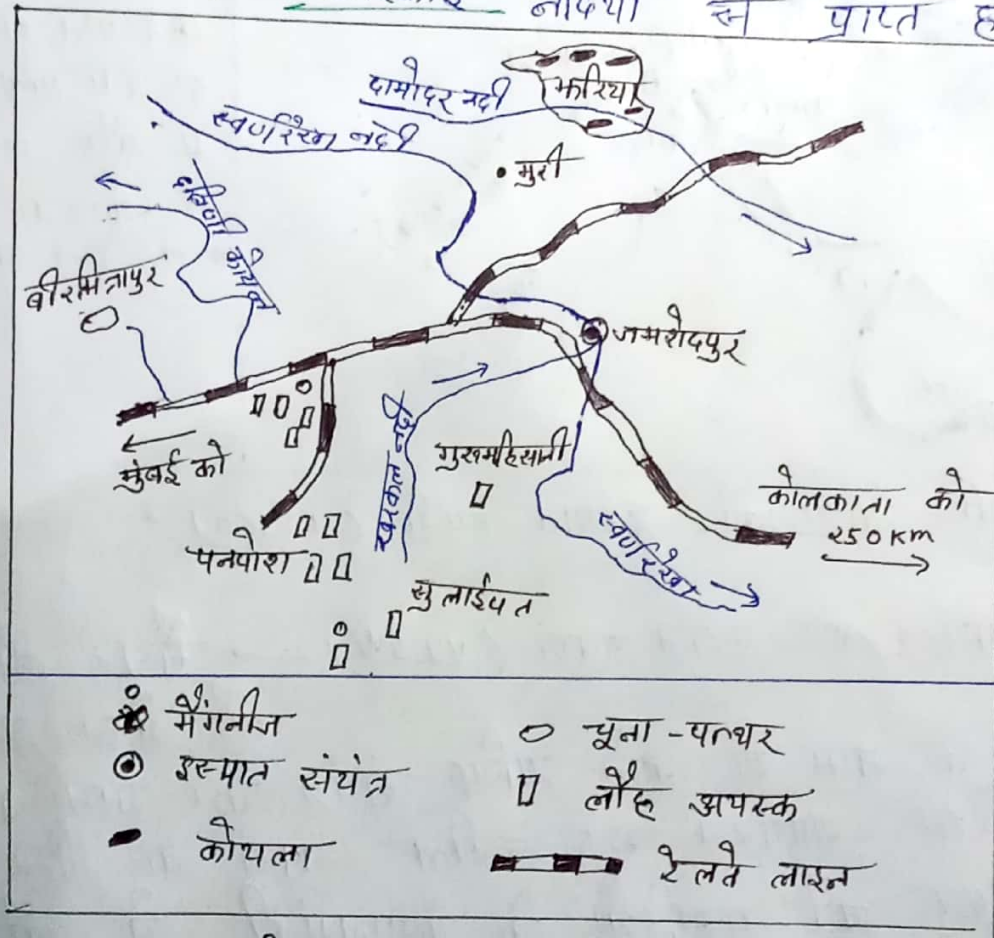 नदियों से प्राप्त ह
दामोदर नदी
झरिया
स्वर्णरेखा नदी
मुरी
दक्षिणी कोयल
बीरमित्रापुर
जमशेदपुर
मुंबई को
खरकल नदी
गुरुमहिसानी
कोलकाता को
250 km
स्वर्णरेखा
पनपोश
सुलाईपत
मैंगनीज
चूना-पत्थर
इस्पात संयंत्र
लौह अयस्क
कोयला
रेलवे लाइन